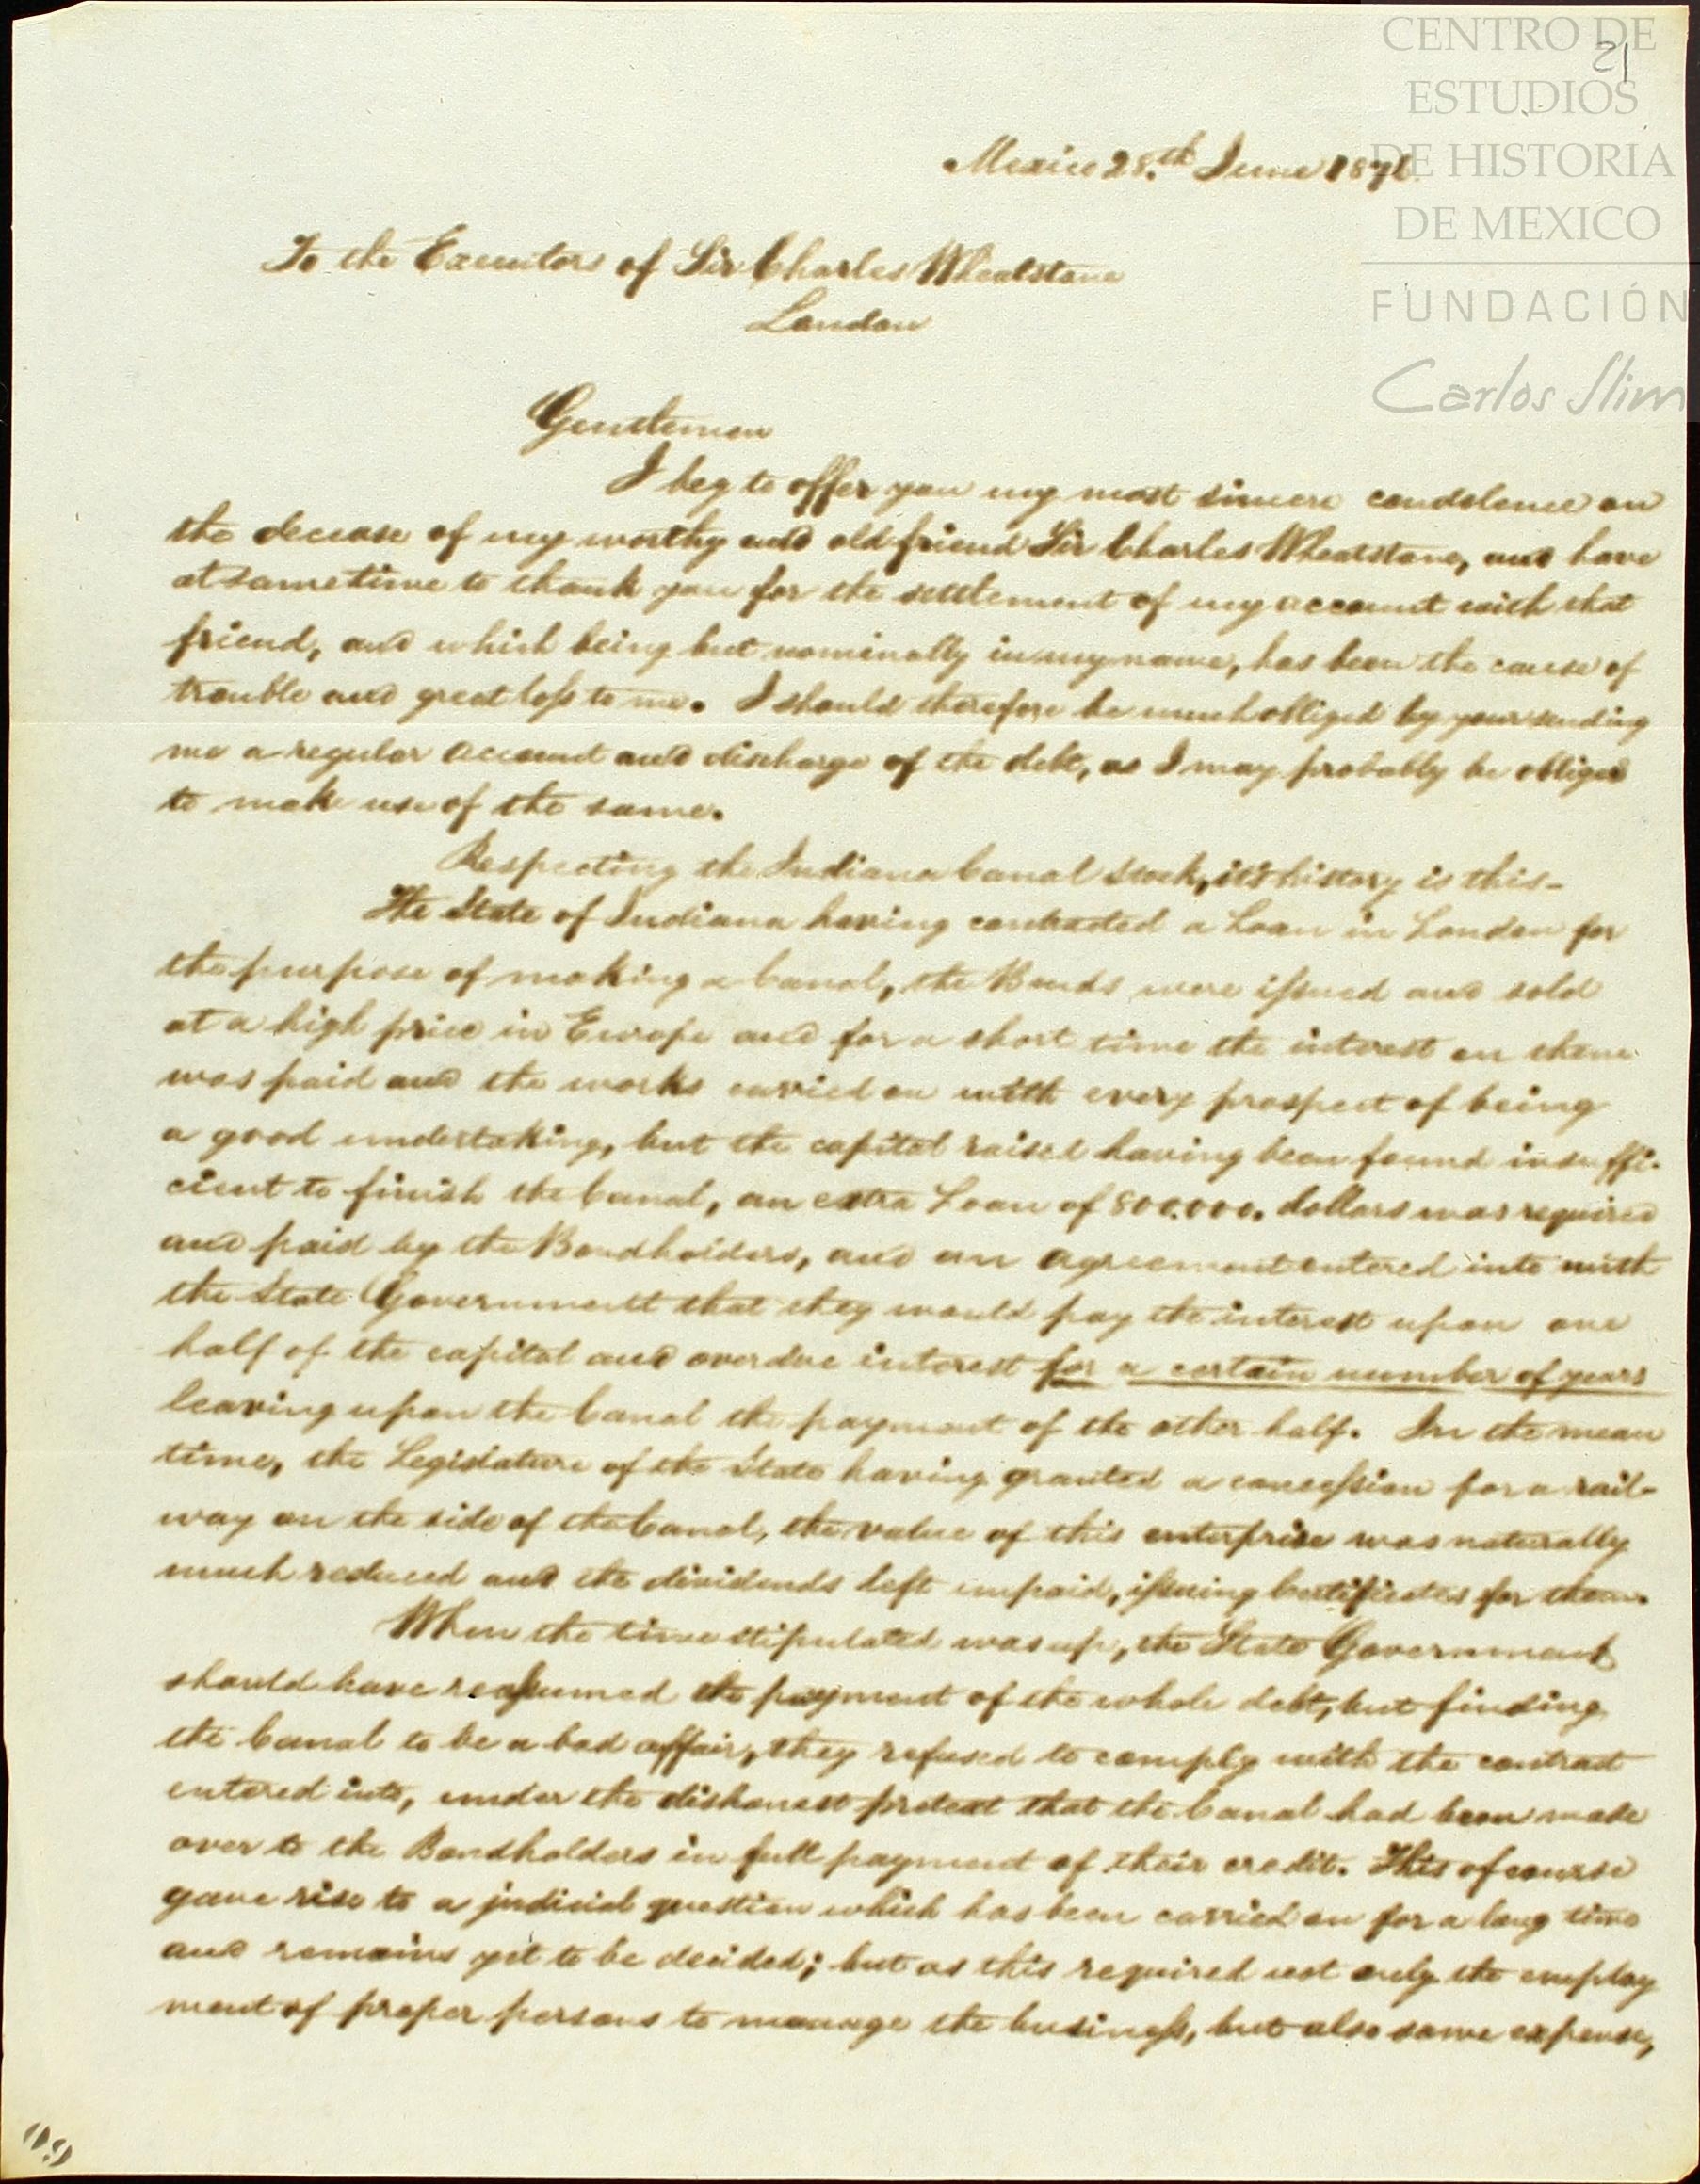 CENTRO DE
ESTUDIOS
DE HISTORIA
DE MEXICO
FUNDACIÓN
Carlos Slim
21
Mexico 28.th June 1876.
To the Executors of Sir Charles Wheatstone
London
Gentlemen
I beg to offer you my most sincere condolence on
the decease of my worthy and old friend Sir Charles Wheatstone, and have
at sametime to thank you for the settlement of my account with that
friend, and which being but nominally in my name, has been the cause of
trouble and great loss to me. I should therefore be much obliged by your sending
me a regular account and discharge of the debt, as I may probably be obliged
to make use of the same.
Respecting the Indiana Canal Stock, it's history is this-
The State of Indiana having contracted a Loan in London for
the purpose of making a Canal, the Bonds were issued and sold
at a high price in Europe and for a short time the interest on them
was paid and the works carried on with every prospect of being
a good undertaking, but the capital raised having been found insuffi-
cient to finish the Canal, an extra Loan of 800.000. dollars was required
and paid by the Bondholders, and an agreement entered into with
the State Government that they would pay the interest upon one
half of the capital and overdue interest for a certain number of years
leaving upon the Canal the payment of the other half. In the mean
time, the Legislature of the State having granted a concession for a rail-
way on the side of the Canal, the value of this enterprise was naturally
much reduced and the dividends left unpaid, issuing Certificates for them.
When the time stipulated was up, the State Government
should have reassumed the payment of the whole debt, but finding
the Canal to be a bad affair, they refused to comply with the contract
entered into, under the dishonest pretext that the Canal had been made
over to the Bondholders in full payment of their credit. This of course
gave rise to a judicial question which has been carried on for a long time
and remains yet to be decided; but as this required not only the employ
ment of proper persons to manage the business, but also some expense,
60